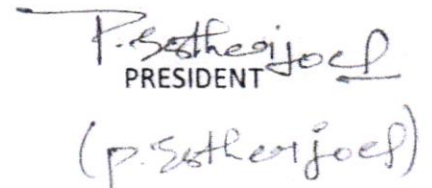 P. Estherijoel
PRESIDENT
(p. Estherjoel)